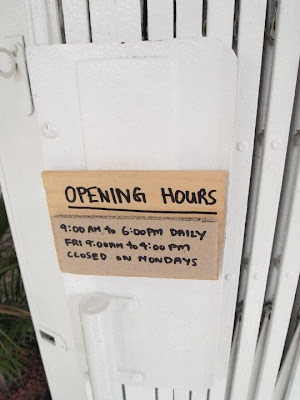 OPENING HOURS
9:00 AM to 6:00PM DAILY
FRI 9:00AM to 4:00 PM
CLOSED ON MONDAYS